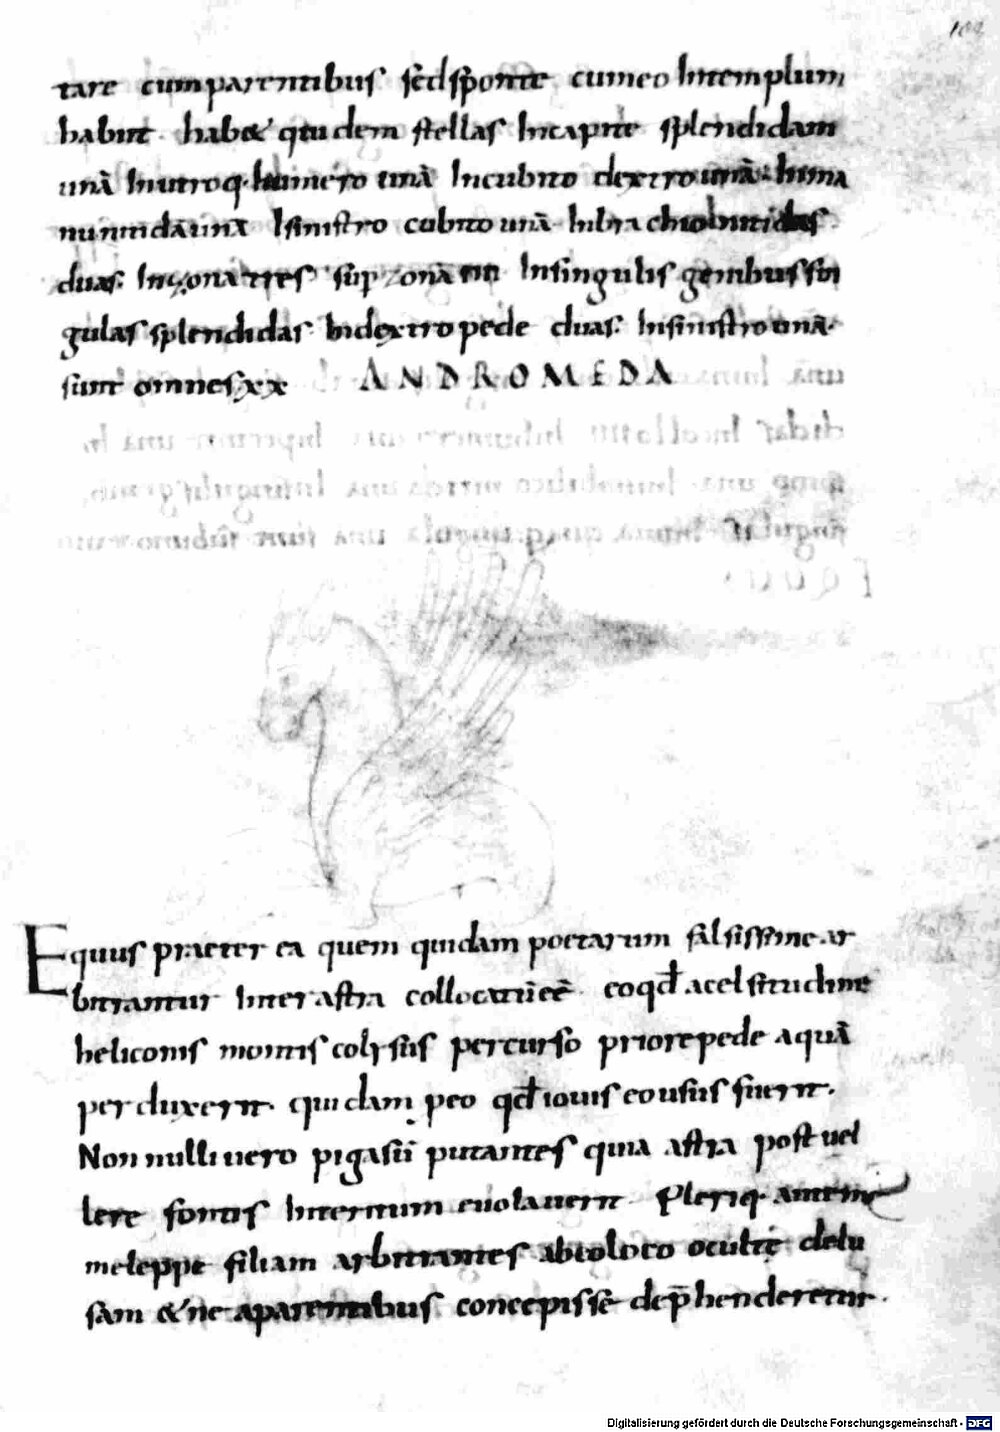 104
tare cumparentibus sedsponte cumeo Intemplum
habiit habe& quidem stellas Incapite splendidam
unā Inutroq· humero unā Incubito dextro unā· Inma
nu unā Isinistro cubito unā· Inbrachio
duas. Inzona tres sup zonā IIII Insingulis genibus sin
gulas splendidas· Indextro pede duas· Insinistro unā·
sunt omnes xx ANDROMEDA
Equus praeter ea quem quidam poetarum falsissime ar
bitrantur Inter astra collocatū eē· eo qđ acelsitudine
heliconis montis colrsus percurso priore pede aquā
perduxerit· quidam p eo qđ iouis eo usus fuerit·
Non nulli uero pigasū putantes quia astra post uel
lere fontis Internum euolauerit· Pleriq· autem
meleppe filiam arbitrantes ab eo loco ocultę delu
sam &ne aparentibus concepisse dep̄henderetur.
Digitalisierung gefördert durch die Deutsche Forschungsgemeinschaft - DFG